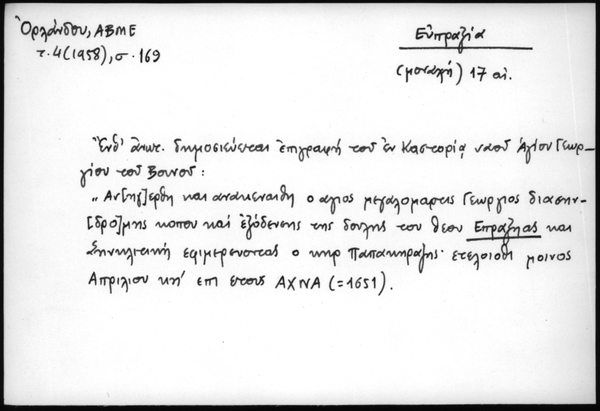 Ὀρλάνδου, ΑΒΜΕ
τ. 4 (1958), σ. 169
Εὐπραξία
(μοναχή) 17 αἰ.
Ἔνθ' ἀνωτ. δημοσιεύεται ἐπιγραφή τοῦ ἐν Καστορίᾳ ναοῦ Ἁγίου Γεωρ-
γίου τοῦ Βουνοῦ:
"Αν[ηγ]ερθη και ανακενισθη ο αγιος μεγαλομαρτις Γεωργιος δια συν-
[δρο]μης κοπου καί ἐξόδευσης της δουλης του θεου Επραξηας και
Σηνκλιτικη εφιμερευοντας ο κηρ Παπακηραζης· ετελοιοθι μοινος
Απριλιου κη' επι ετους ΑΧΝΑ (=1651).